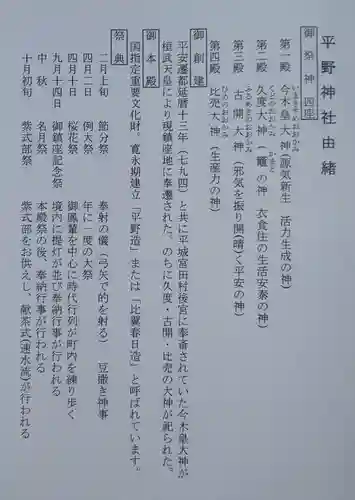 平野神社由緒
御祭神 四座
第一殿 今木皇大神(源気新生 活力生成の神)
いまきすめおおかみ
第二殿 久度大神(竈の神 衣食住の生活安泰の神)
くどのおおかみ かまど
第三殿 古開大神(邪気を振り開(晴)く平安の神)
ふるあきのおおかみ
第四殿 比売大神(生産力の神)
ひめのおおかみ
御創建
平安遷都延暦十三年(七九四)と共に平城宮田村後宮に奉斎されていた今木皇大神が
桓武天皇により現鎮座地に奉遷された。のちに久度・古開・比売の大神が祀られた。
御本殿
国指定重要文化財。寛永期建立「平野造」または「比翼春日造」と呼ばれています。
祭典
二月上旬 節分祭 奉射の儀(弓矢で的を射る) 豆撒き神事
四月二日 例大祭 年に一度の大祭
四月十日 桜花祭 御鳳輦を中心に時代行列が町内を練り歩く
九月十四日 御鎮座記念祭 境内に提灯が並び奉納行事が行われる
中秋 名月祭 本殿祭の後、奉納行事が行われる
十月初旬 紫式部祭 紫式部をお供えし、献茶式(速水流)が行われる